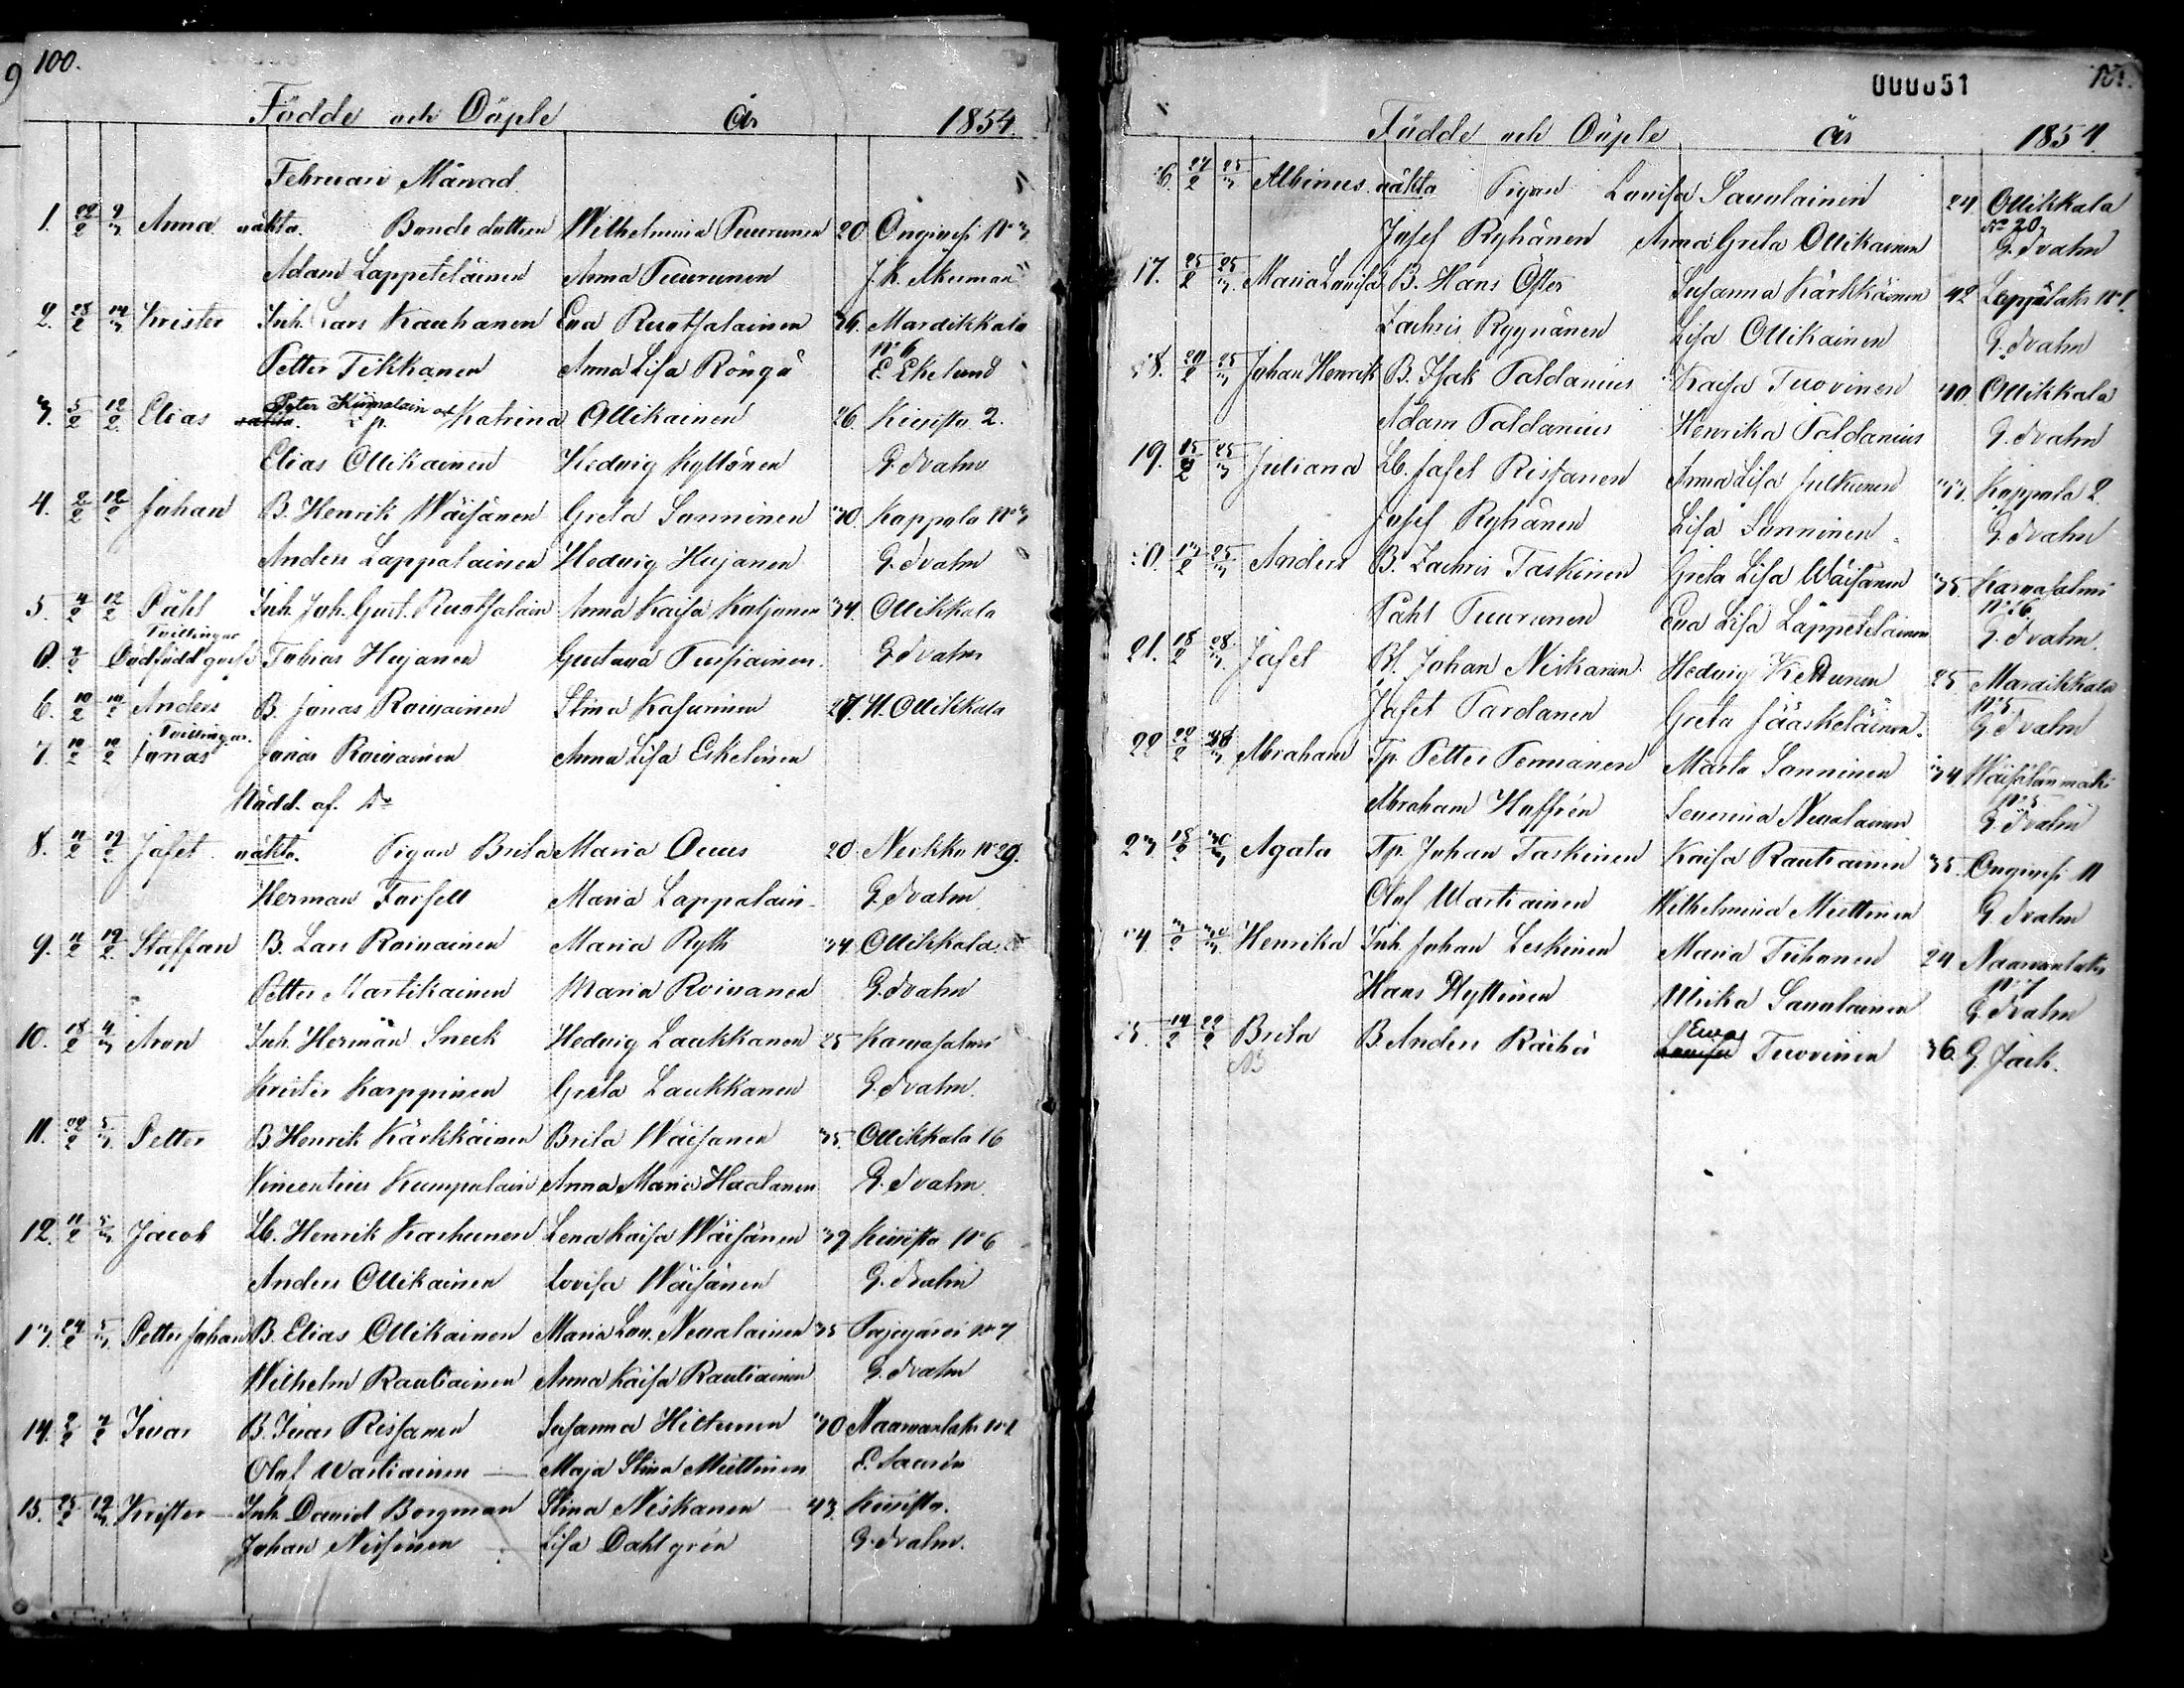 100.
Födde och Döpte år 1854.
Februari Månad
1. 22/2 9/3 Anna oäkta. Bonde dottern Wilhelmina Tuurunen 20 Ongivesi No 3
Adam Lappeteläinen Anna Tuurunen J. K. Akerman
2. 28/2 14/3 Krister Inh. Lars Kauhanen Eva Ruotsalainen 36. Mardikkala No 6
Petter Tikkanen Anna Lisa Rongä E. Ekelund
3. 5/2 12/2 Elias Peter Kumpulain och Katrina Ollikainen 26 Kivisto 2.
Elias Ollikainen Hedvig Kyllönen G. Dvalm
4. 2/2 12/2 Johan B. Henrik Wäisänen Greta Sonninen 30. Koppola No 3
Anders Lappalainen Hedvig Hujanen G. Dvalm
5. 4/2 12/2 Påhl Inh. Joh. Gust. Ruotsalain Anna Kaisa Kaljunen 34. Ollikkala
Tvillingar
0. 4/2 Dödfödd gosse Tobias Hujanen Gustava Tuisiainen. G Dvalm
6. 10/2 14/2 Anders B. Jonas Roivainen Stina Kasurinen 27. N. Ollikkala
Tvillingar.
7. 10/2 10/2 Jonas Jonas Roivainen Anna Lisa Eskelinen
Nödd. af Do
8. 11/2 19/2 Jafet oäkta. Pigan Brita Maria Ouus 20. Neukko No 29.
Herman Forsell Maria Lappalain G. Dvalm
9. 11/2 19/2 Staffan B. Lars Roinainen Maria Ryth 34. Ollikkala
Petter Martikainen Maria Roivanen G. Dvalm
10. 18/2 4/3 Aron Inh. Herman Sneck Hedvig Laukkanen 25 Karvasalmi
Krister Karppinen Greta Laukkanen G. Dvalm.
11. 22/2 5/3 Petter B Henrik Kärkkäinen Brita Wäisänen 35. Ollikkala 16
Vincentius Kumpulain Anna Maria Haalanen G. Dvalm.
12. 11/2 5/3 Jacob Lb. Henrik Karhunen Lena Kaisa Wäisänen 39 Kivisto No 6
Anders Ollikainen Lovisa Wäisänen G. Dvalm
13. 24/2 5/3 Petter Johan B. Elias Ollikainen Maria Lov. Neualainen 35 Pajujarvi No 7
Wilhelm Rautiainen Anna Kaisa Rautiainen G. Dvalm
14. 2/2 4/2 Ivar B. Ivar Rissanen Susanna Hiltunen 30 Naarvanlaks No 1
Olof Wartiainen Maja Stina Miettinen
15. 25/2 19/3 Krister Inh. David Borgman Stina Niskanen 43. Kivisto.
Johan Neisonen Lisa Dahlgrén G. Dvalm.
000051
101.
Födde och Döpte år 1854.
16. 24/2 25/3 Albinus oäkta Pigan Lovisa Savolainen 24 Ollikkala No 20.
Josef Ryhänen Anna Greta Ollikainen G. Dvalm
17. 25/2 25/3 Maria Lovisa B. Hans Öster Susanna Kärkkäinen 42 Leppälaks No 1.
Zachris Ryynänen Lisa Ollikainen G. Dvalm
18. 20/2 25/3 Johan Henrik B. Isak Paldanius Kaisa Tuovinen 40. Ollikkala
Adam Paldanius Henrika Paldanius G. Dvalm
19. 15/2 25/3 Juliana Lb. Jafet Rissanen Anna Lisa Julkunen 33. Koppola 2.
Josef Ryhänen Lisa Sonninen G. Dvalm
20. 13/2 25/3 Anders B. Zachris Taskinen Greta Lisa Wäisänen 35. Karvasalmi No 16
Påhl Tuurunen Eva Lisa Lappeteläinen G. Dvalm.
21. 18/2 28/3 Jafet Bs. Johan Niskanen Hedvig Kettunen 25 Mardikkala No 5.
Jafet Pardanen Greta Jääskeläinen. G. Dvalm
22 22/2 28/3 Abraham Tp. Petter Pennanen Märta Sonninen 34 Wäisälänmäki No 5
Abraham Hoffrén Severina Neualainen G. Dvalm
23. 18/2 30/3 Agata Tp. Johan Taskinen Kaisa Rautiainen 35. Ongivesi 11
Olof Wartiainen Wilhelmina Miettinen G. Dvalm
24. 3/2 30/3 Henrika Inh. Johan Leskinen Maria Tiihonen 24 Naarvanlaks No 7
Hans Hyttinen Ulrika Savolainen G. Dvalm
25. 14/2 22/2 Brita B. Anders Räihä Eva Tuovinen 36. G. Jack.
NB